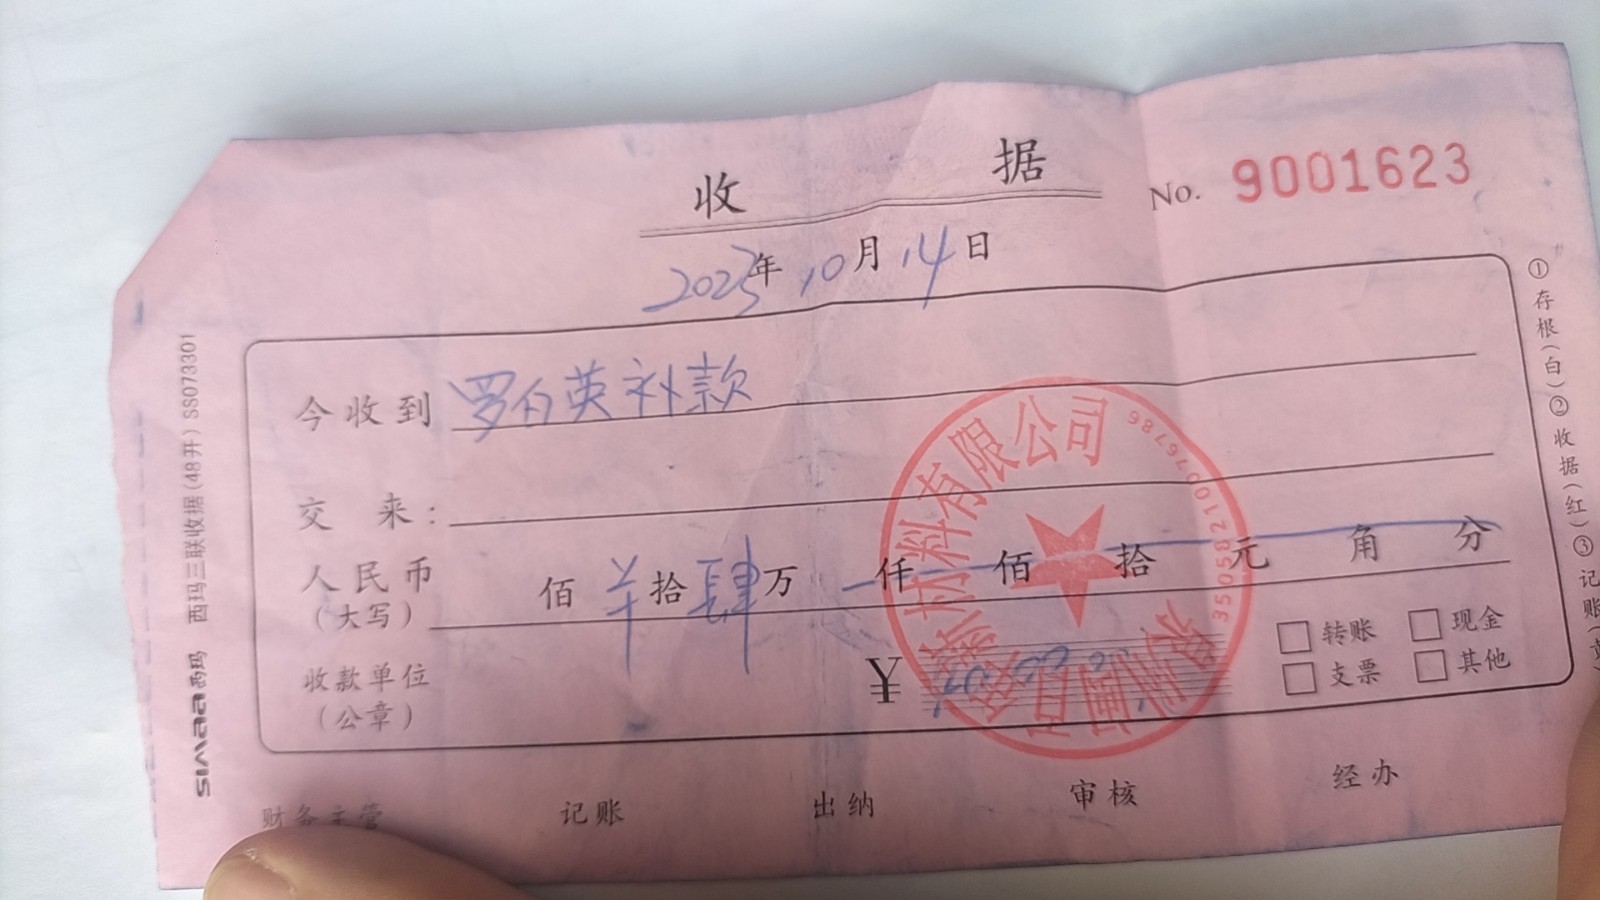 收据
No. 9001623
2023年10月14日
今收到 罗白英补款
交来：
人民币（大写） 佰 拾肆万 仟 佰 拾 元 角 分
收款单位（公章）
¥
转账 现金
支票 其他
财务主管 记账 出纳 审核 经办
西玛 西玛三联收据(48开) SS073301
simaa
①存根(白)②收据(红)③记账(
材料有限公司
35058210076786